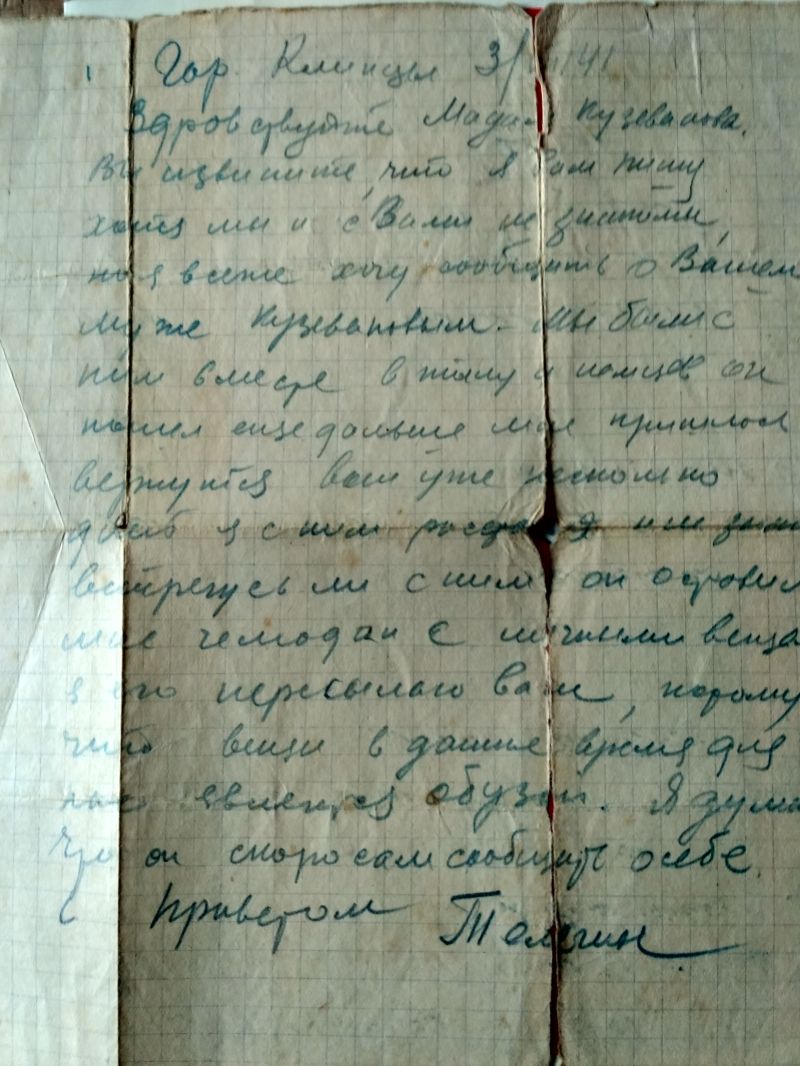 Гор. Клинцы 3/ 41
Здровствуйте Мадам Кузеванова.
Вы извините, что я вам пишу
хотя мы и с Вами не знакомы,
но я все же хочу сообщить о Вашем
муже Кузевановым. Мы были с
ним вместе в тылу у немцев он
пошел еще дальше мне пришлось
вернутся вот уже несколько
дней я с ним и не знаю
встречусь ли с ним он оставил
мне чемодан с личными веща
я его пересылаю вам, потому
что вещи в данное время для
нас является обузой. Я дума
что он скоро сам сообщить о себе.
С приветом